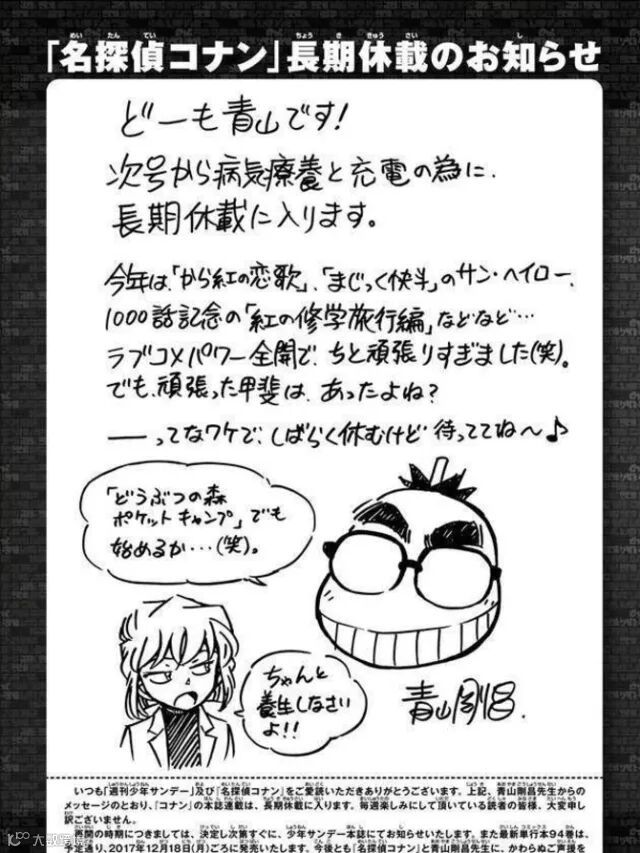 「名探偵コナン」長期休載のお知らせ
どーも青山です!
次号から病気療養と充電の為に、
長期休載に入ります。
今年は、「から紅の恋歌」、「まじっく快斗」のサン・ヘイロー、
1000話記念の「紅の修学旅行編」などなど…
ラブコメパワー全開で、ちと頑張りすぎました(笑)。
でも、頑張った甲斐は、あったよね?
――ってなワケで、しばらく休むけど 待っててね〜♪
「どうぶつの森
ポケットキャンプ」でも
始めるか…(笑)。
ちゃんと
養生しなさい
よ!!
青山剛昌.
いつも「週刊少年サンデー」及び「名探偵コナン」をご愛読いただきありがとうございます。上記、青山剛昌先生からの
メッセージのとおり、「コナン」の本誌連載は、長期休載に入ります。毎週楽しみにして頂いている読者の皆様、大変申し
訳ございません。
再開の時期につきましては、決定し次第すぐに、少年サンデー本誌にてお知らせいたします。また最新単行本94巻は、
予定通り、2017年12月18日(月)ごろに発売いたします。今後とも「名探偵コナン」と青山剛昌先生に、かわらぬご声援を